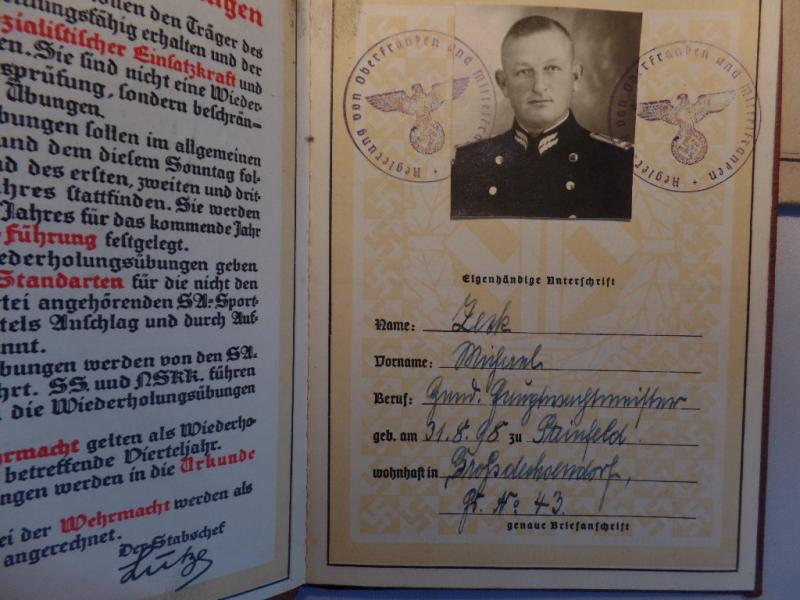 igen
ollen den Träger des
nungsfähig erhalten und der
zialistischer Einsatzkraft und
en. Sie sind nicht eine Wieder-
sprüfung, sondern beschrän-
Übungen.
bungen sollen im allgemeinen
und dem diesem Sonntag fol-
d des ersten, zweiten und drit-
ahres stattfinden. Sie werden
Jahres für das kommende Jahr
-Führung festgelegt.
iederholungsübungen geben
Standarten für die nicht den
rtei angehörenden SA-Sport-
tels Anschlag und durch Auf-
nnt.
bungen werden von den SA.
hrt. SS. und NSKK. führen
die Wiederholungsübungen
hrmacht gelten als Wiederho-
betreffende Vierteljahr.
ngen werden in die Urkunde
ei der Wehrmacht werden als
angerechnet.
Der Stabschef
Lutze
Regierung von Oberfranken und Mittelfranken
Regier von Oberfranken und Mittelfranken
Eigenhändige Unterschrift
Name: Zerk
Vorname: Michael
Beruf: Gend. Hauptwachtmeister
geb. am 31.8.98 zu Steinfeld
wohnhaft in
Hs. No 43.
genaue Briefanschrift